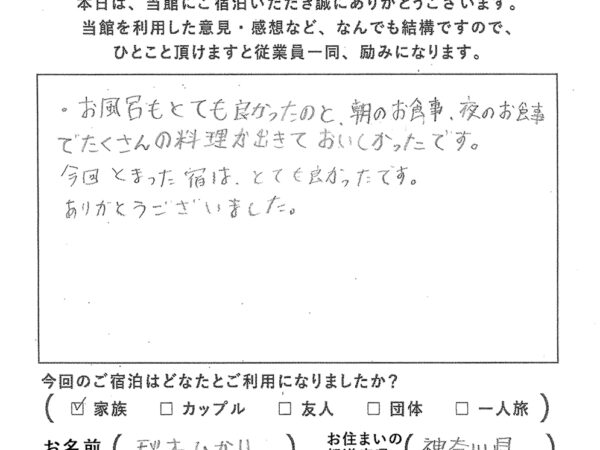 本日は、当館にご宿泊いただき誠にありがとうございます。
当館を利用した意見・感想など、なんでも結構ですので、
ひとこと頂けますと従業員一同、励みになります。
・お風呂もとても良かったのと、朝のお食事、夜のお食事
でたくさんの料理が出きておいしかったです。
今回とまった宿は、とても良かったです。
ありがとうございました。
今回のご宿泊はどなたとご利用になりましたか?
( ☑ 家族 □ カップル □ 友人 □ 団体 □ 一人旅 )
お名前 ( ひかり ) お住まいの ( 神奈川県